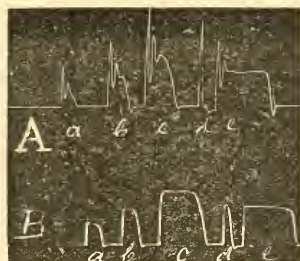 A a b c d e
B a b c d e